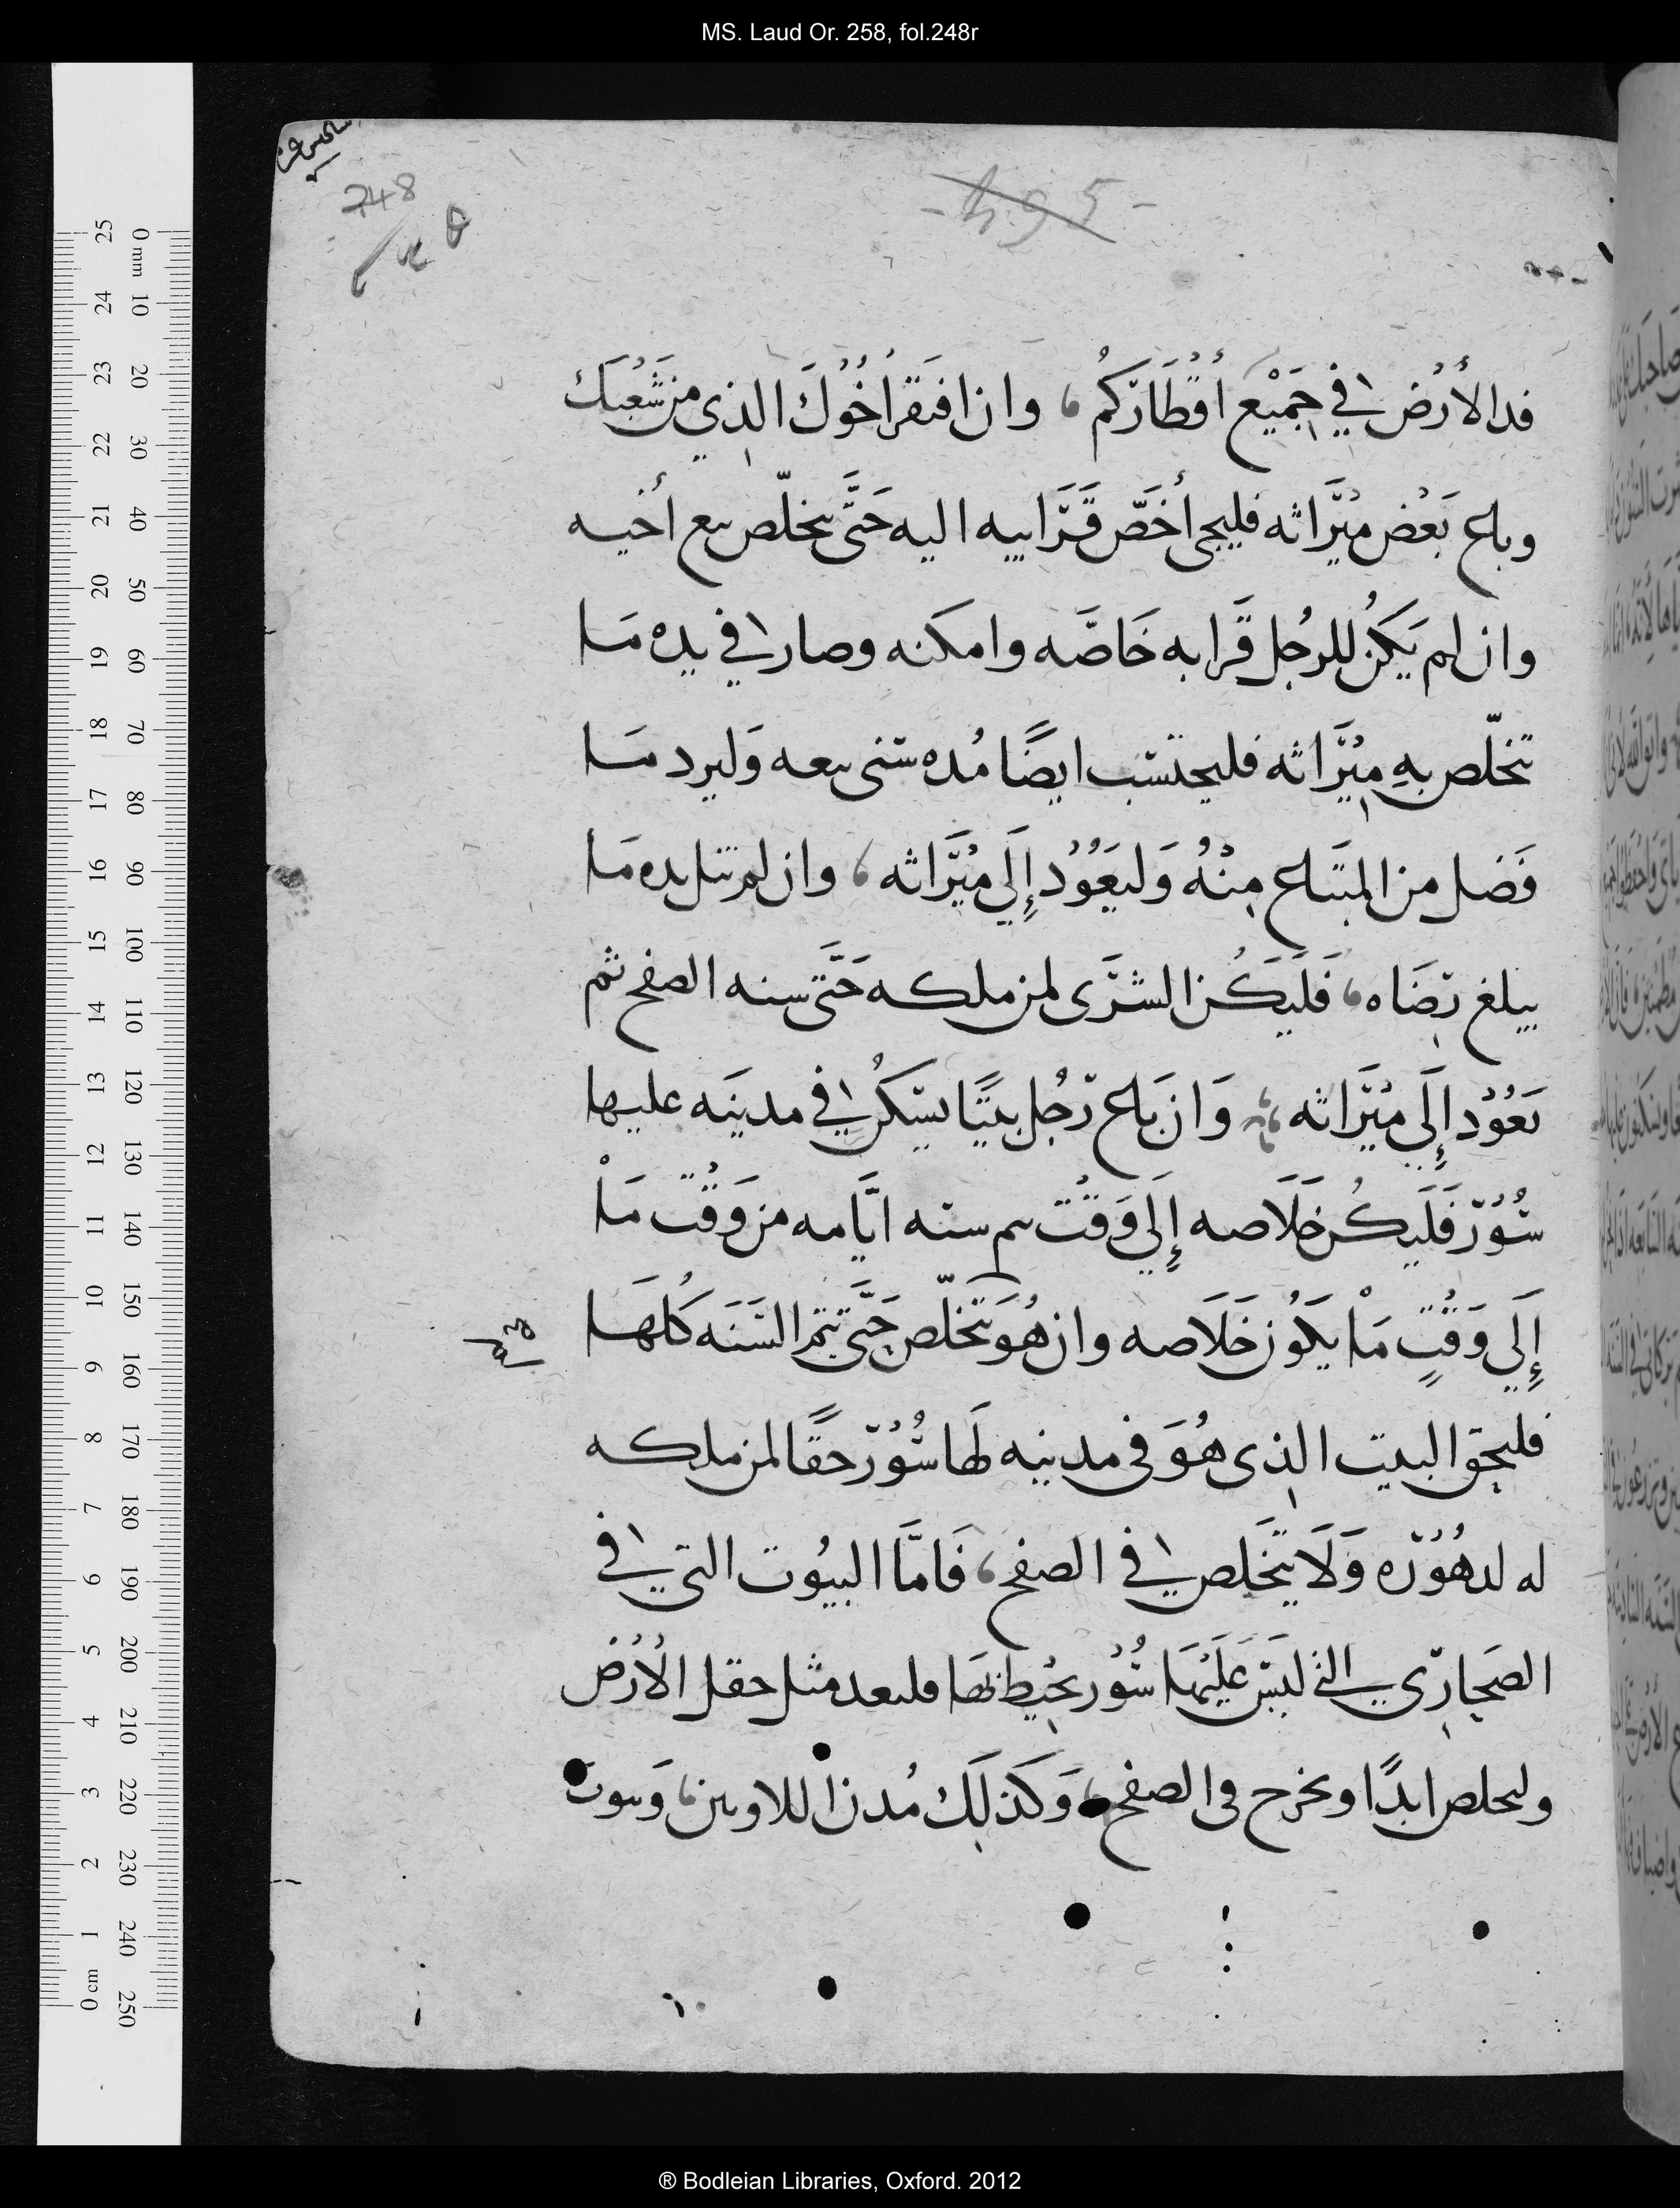 MS. Laud Or. 258, fol.248r
248
495
فدا الأرض في جميع أقطاركم، وان افتقر اخوك الذي من شعبك
وباع بعض ميراثه فليجى أخصّ قرابيه اليه حتَّى يخلّص بيع أخيه
وان لم يكن للرجل قرابه خاصَّه وامكنه وصار في يده ما
تخلّص به ميراثه فليحتسب ايضًا مُده سنى بيعه وليرد ما
فضل من المبتاع منهُ وليعود إلي ميراثه، وان لم تنل يده ما
يبلغ رضاه، فليكن الشرى لمن ملكه حتَّى سنه الصفح ثم
يعود إلى ميراثه، وان باع رجل بيتًا يسكن في مدينه عليها
سُور فليكن خلاصه إلي وقت سنه ايَّامه من وقت ما
إلى وقتٍ ما يكون خلاصه وان هو تخلّص حتَّى تتم السنه كلها
فليحق البيت الذى هو في مدينه لها سُور حقًا لمن ملكه
له لدهوره ولا يتخلص في الصفح، فامَّا البيوت التى في
الصحاري التى ليس عليها سُور يحيط بها فلىعد مثل حقل الارض
ولىخلص ابدًا وىخرج فى الصفح، وكذلك مدن اللاوىىن، وىىوت
® Bodleian Libraries, Oxford. 2012